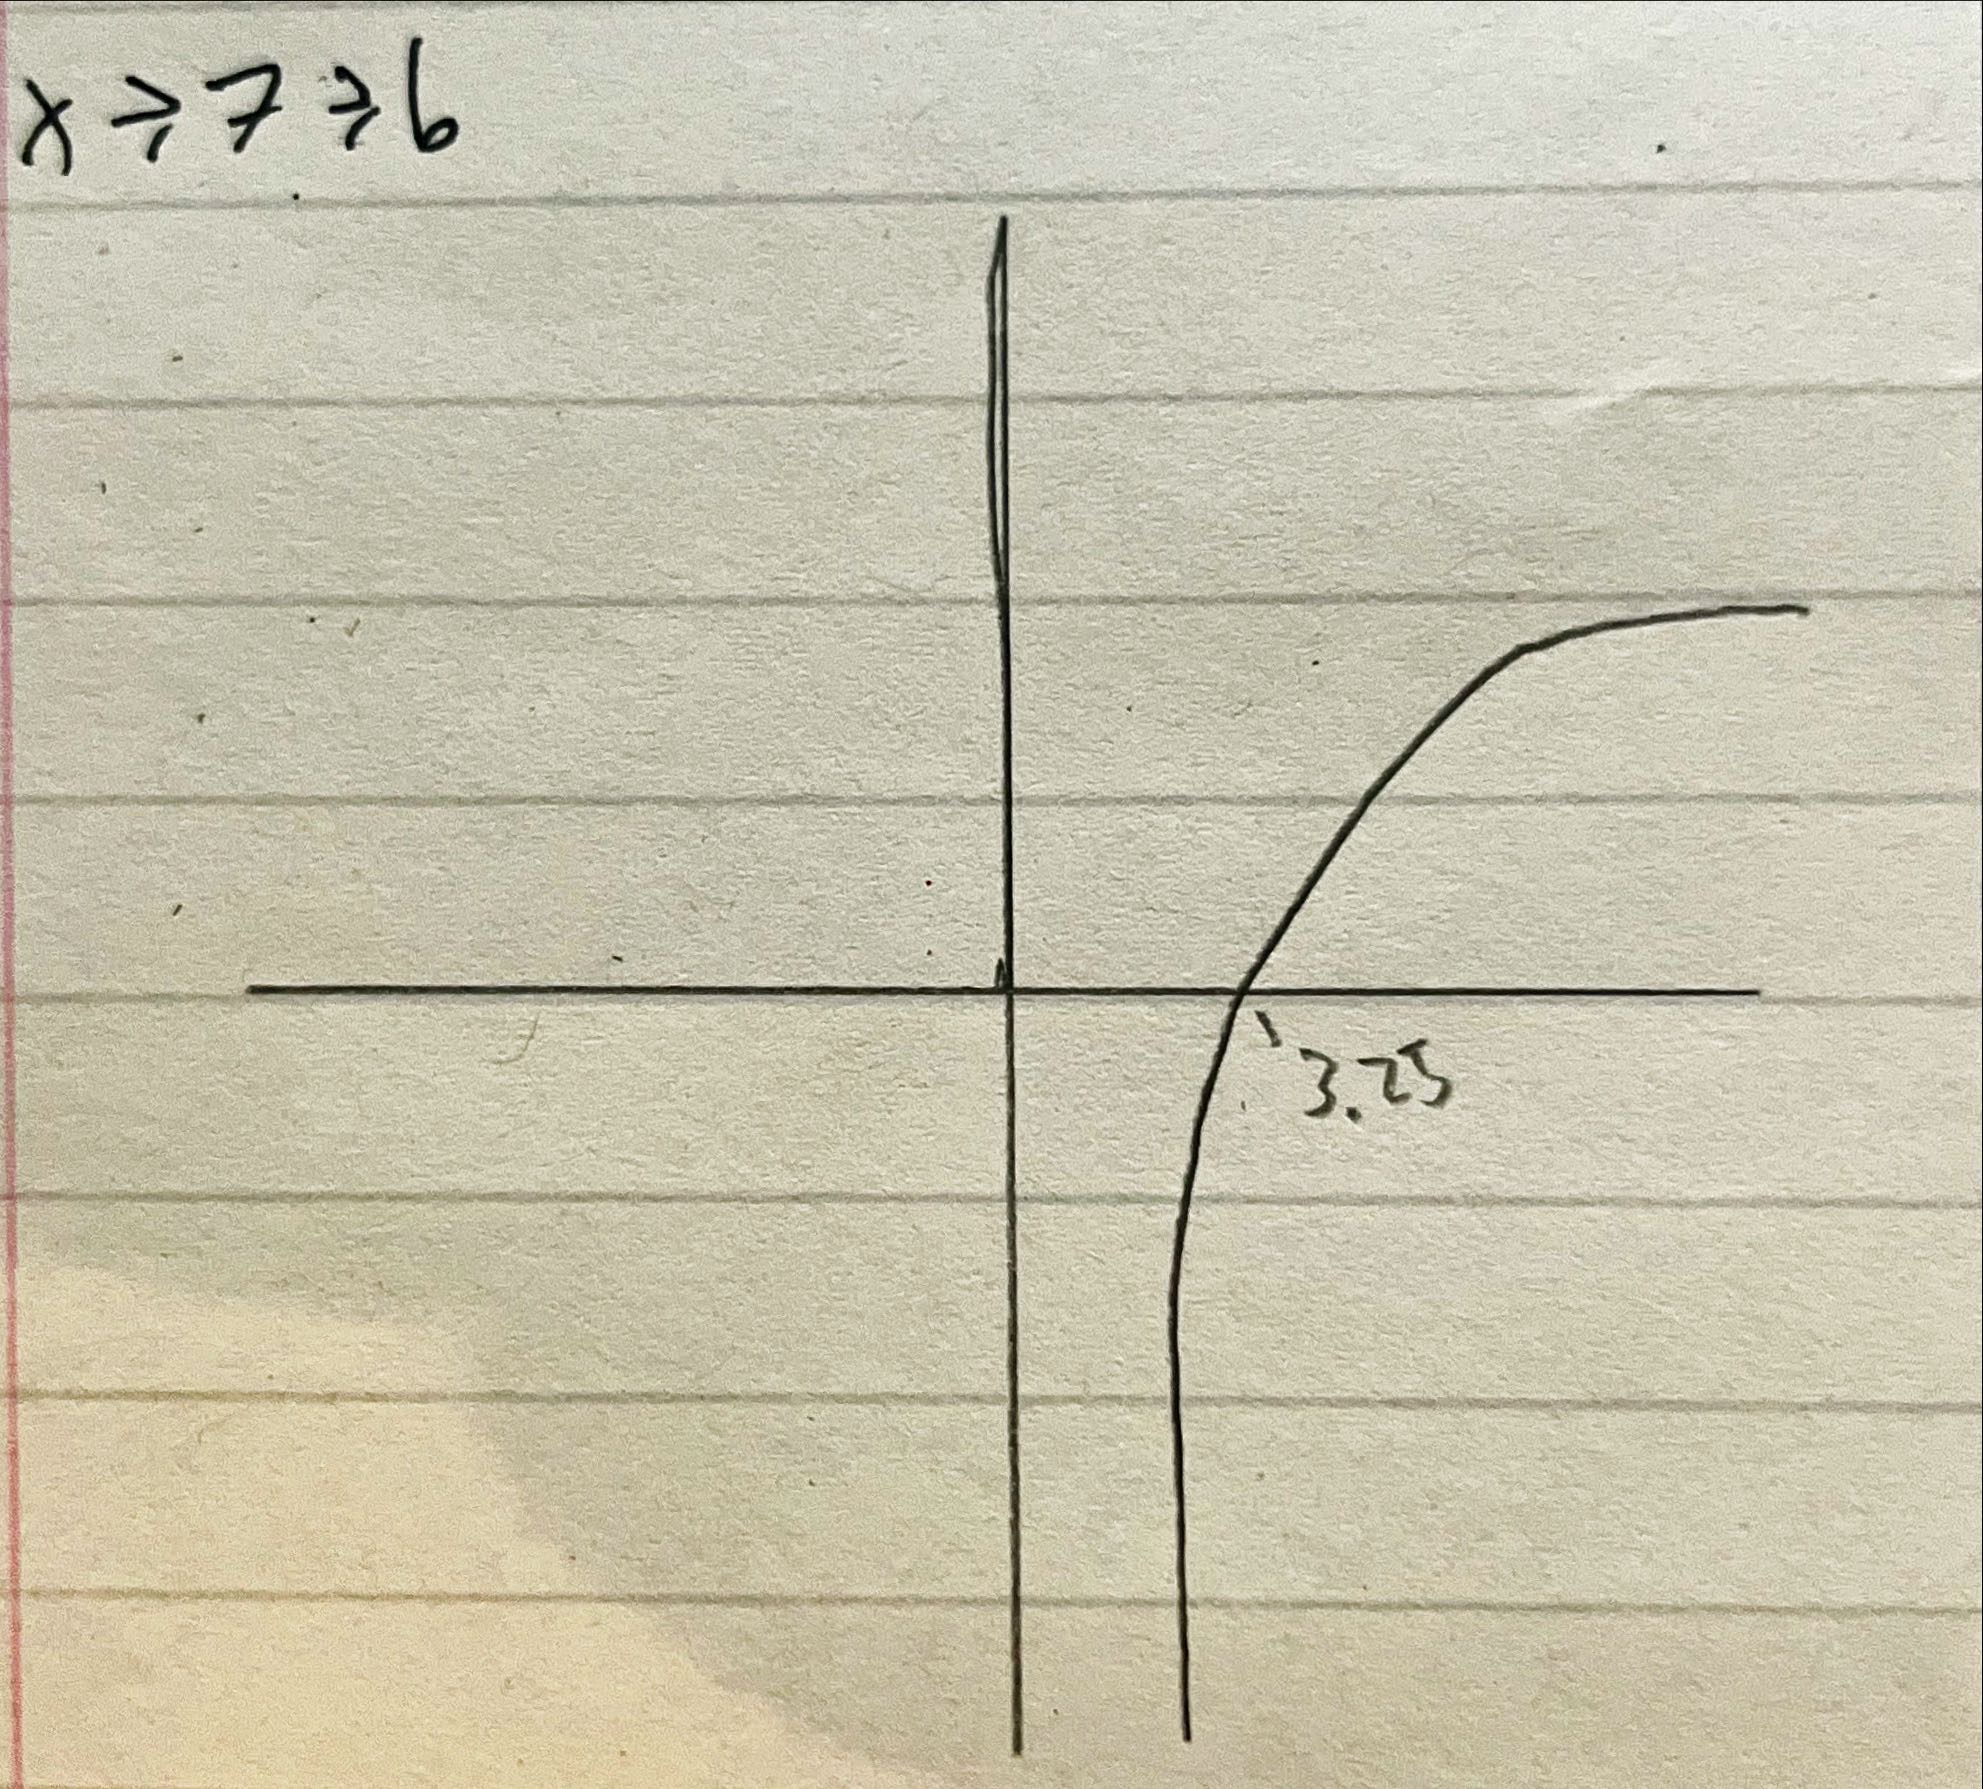 x ⩾ 7 ⩾ 6
3.25